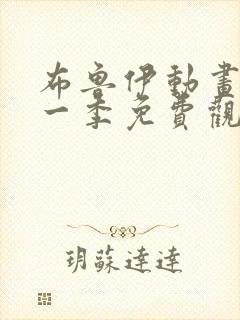 布魯伊動畫
一季免費觀
玥蘇達達